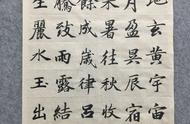 地玄黃宇宙
月盈昃辰宿
来暑往秋收
餘成歲律呂
騰致雨露結
生麗水玉出